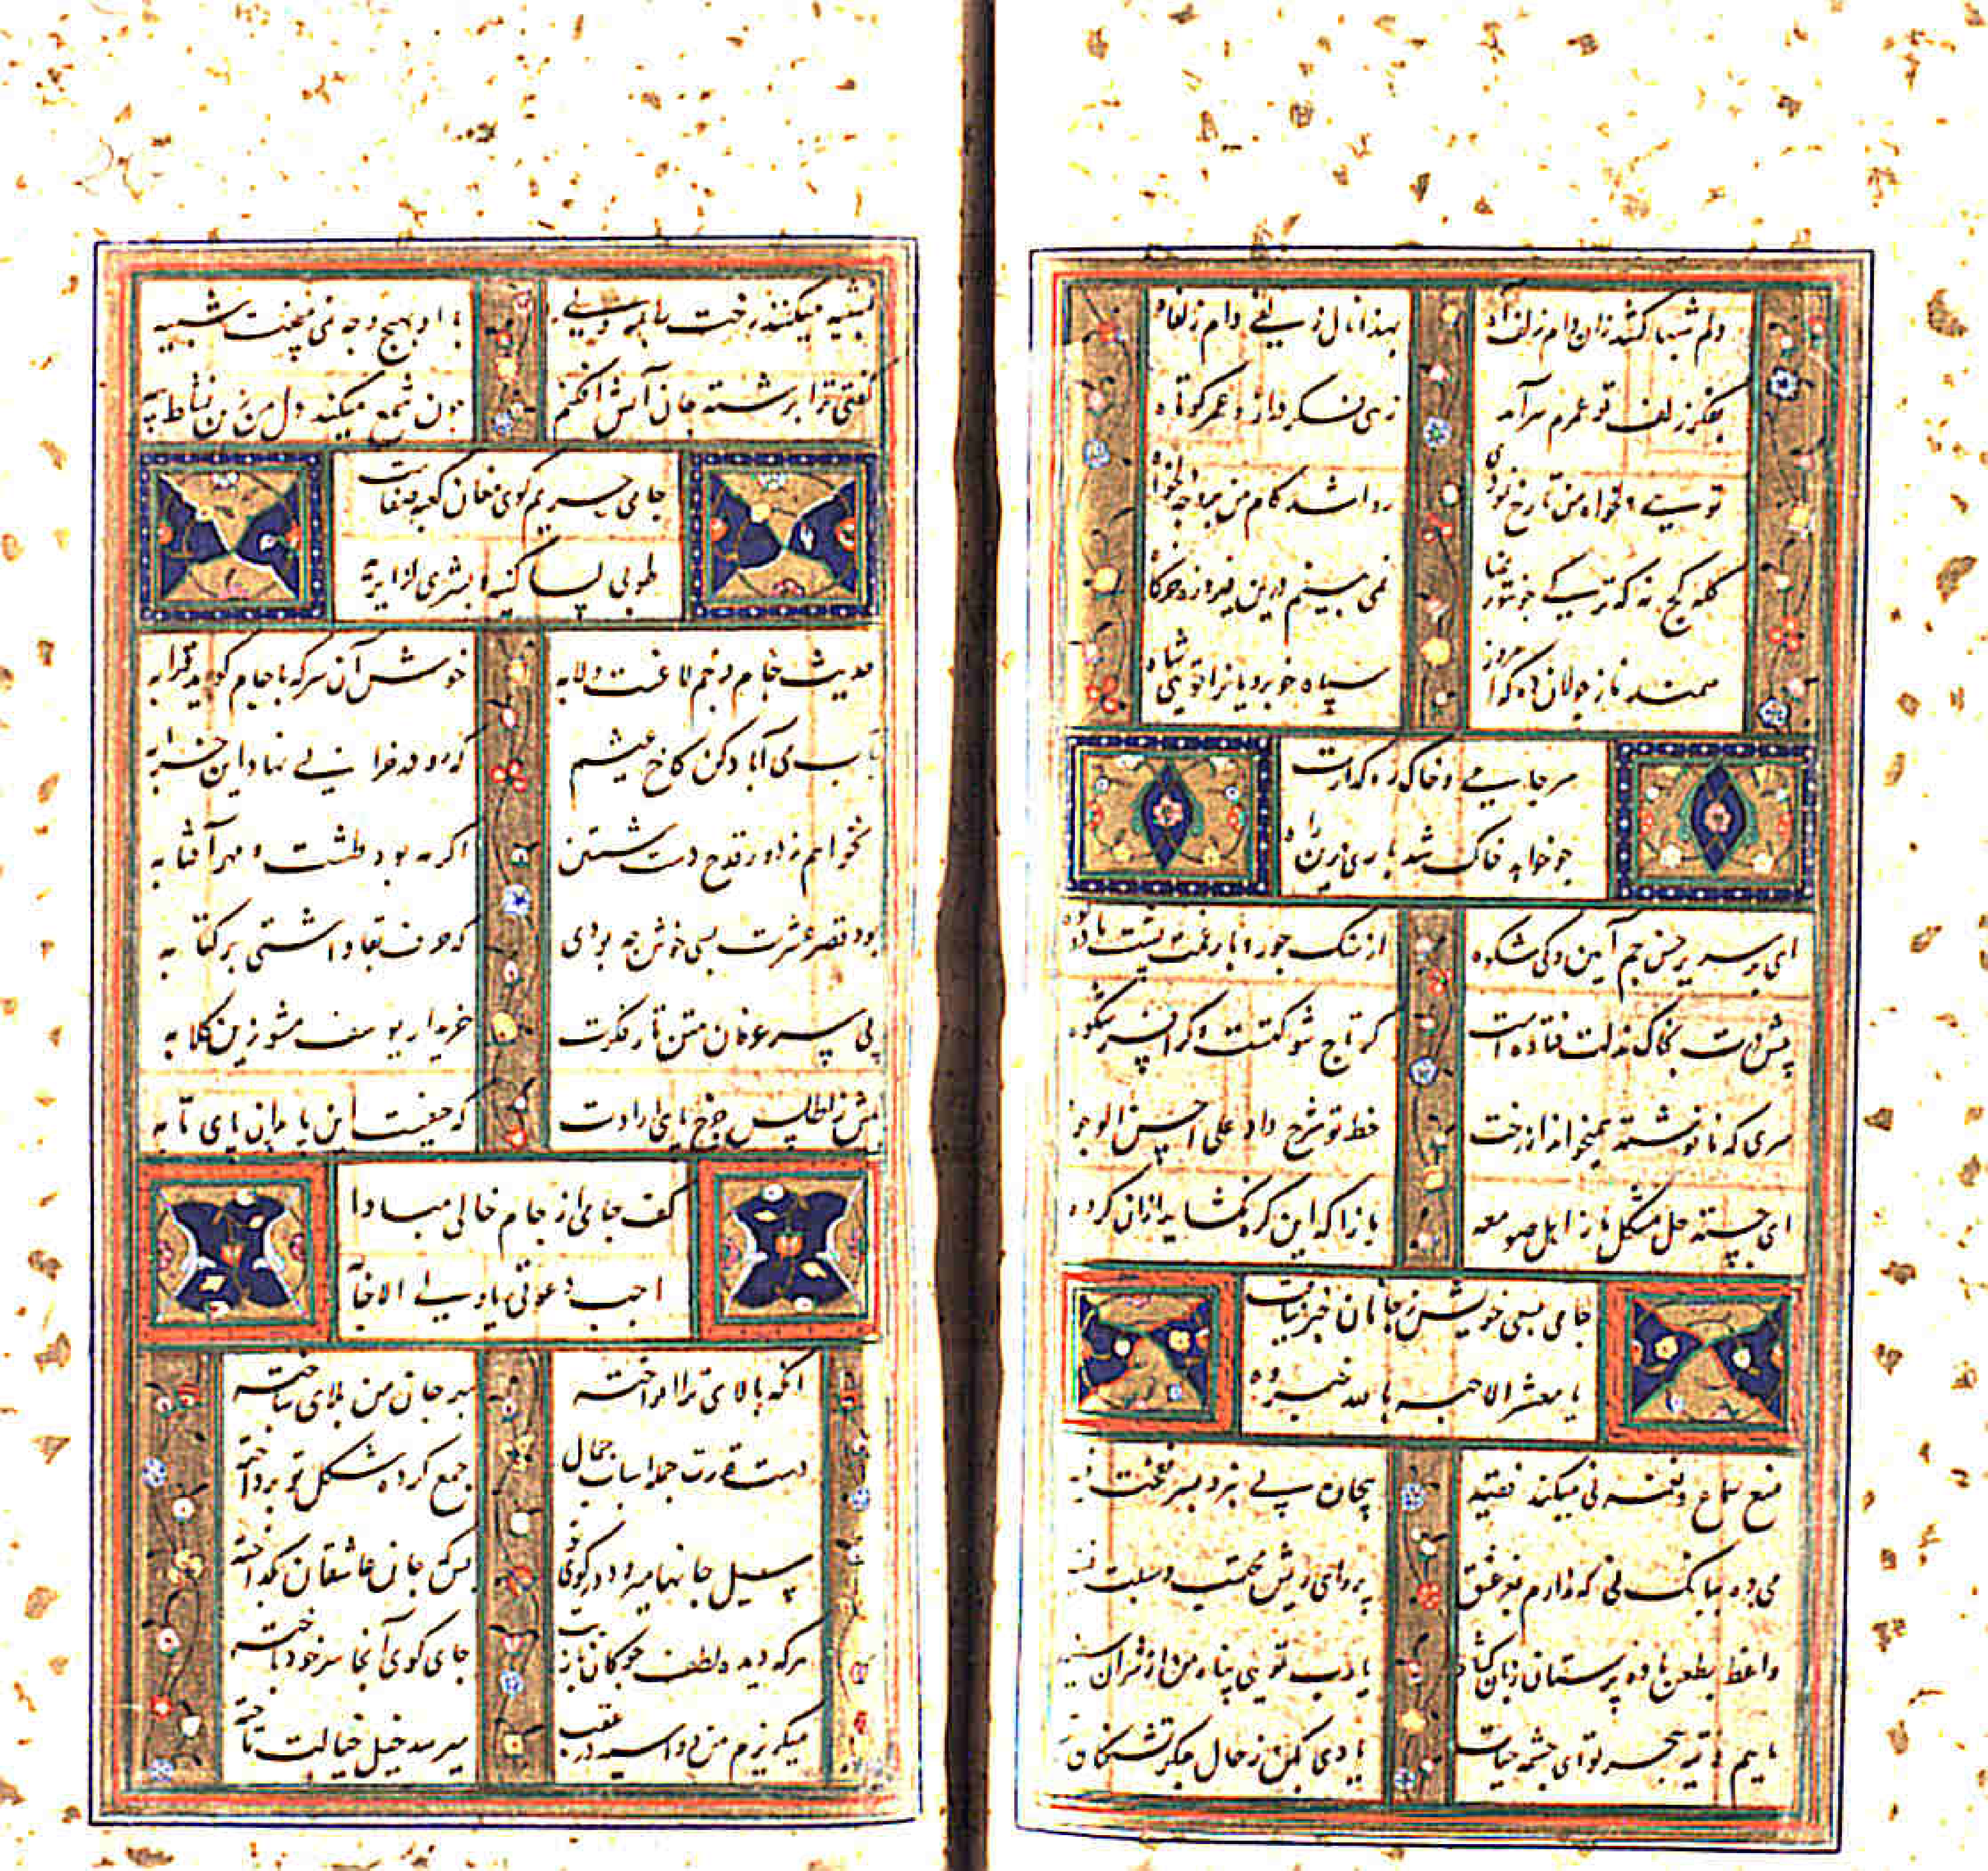 دلم شبها کشد زان دام زلف آه
بدانان از پی دام زلفا
بفکر زلف تو عمرم سرآمد
زهی فکر دراز و عمر کوتاه
تویی دلخواه من تا رخ نمودی
روا شد کام من بر وجه دلخواه
کله کج نه که ترکی چون تو رعنا
نمی‌بینم درین فیروزه خرگاه
سمند ناز جولان ده که امروز
سپاه خوبرویانرا تویی شاه
سر جامی و خاک ره گذارت
چو خواهد خاک شد باری درین راه
ای بر سریر حسن جم آیین و کی شکوه
از سنگ جور و بار غمت پشت ما دوتوه
پیش درت بخاک مذلت فتاده است
گر تاج شوکتست و گر افسر شکوه
سری که نانوشته همیخواند از رخت
خط تو شرح داد علی احسن الوجوه
ای جسته حل مشکل ما ز اهل صومعه
بازآ که این گره نگشاید ازان گروه
جامی بسی خویش ز جانان خبر نیافت
یا معشر الاحبه بالله خبروه
منع سماع و نغمه نی میکند فقیه
بیچاره پی نبرد بسر نفخت فیه
می ده ببانگ نی که ندارم بفر عشق
پروای ریش محتسب و سبلت فقیه
واعظ بطعن باده پرستان زبان گشاد
یارب تویی پناه من از شر آن سفیه
ماییم تایه بحر تو ای چشمه حیات
یادی بکن ز حال جگر تشنگان
تشبیه میکنند رخت را بمه ولی
با او بهیچ وجه نمی‌بینمت شبیه
گفتی ترا برشته جان آتش افکنم
چون شمع میکند دل من زین نشاط پیه
جامی حریم کوی مغان کعبه صفاست
طوبی لساکنیه و بشری لزایریه
حدیث خام و خم لاغست و لابه
خوش آن سرکه با جام گوید قرابه
بآب می آباد کن کاخ عیشم
که رو در خرابی نهاد این خرابه
نخواهم ز دور قدح دست شستن
اگر مه بود طشت و مهر آفتابه
بود قصر عشرت بسی خوش چه بودی
که حرف بقا داشتی بر کتابه
پی پیر عرفان متن تار فکرت
خریدار یوسف مشو زین کلابه
مکش ز اطلس چرخ پای ارادت
که حیفست این پا بران پای تابه
کف جامی از جام خالی مبادا
اجب دعوتی یا ولی الاجابه
آنکه بالای ترا افراخته
بهر جان من بلای ساخته
دست قدرت جمله اسباب جمال
جمع کرده شکل تو پرداخته
سیل جانها میرود در کوی تو
بس که جان عاشقان بگداخته
هر که دیده لطف چوگان بازیت
جای گوی آنجا سر خود باخته
میگریزم من دو اسبه در عقب
میرسد خیل خیالت تاخته